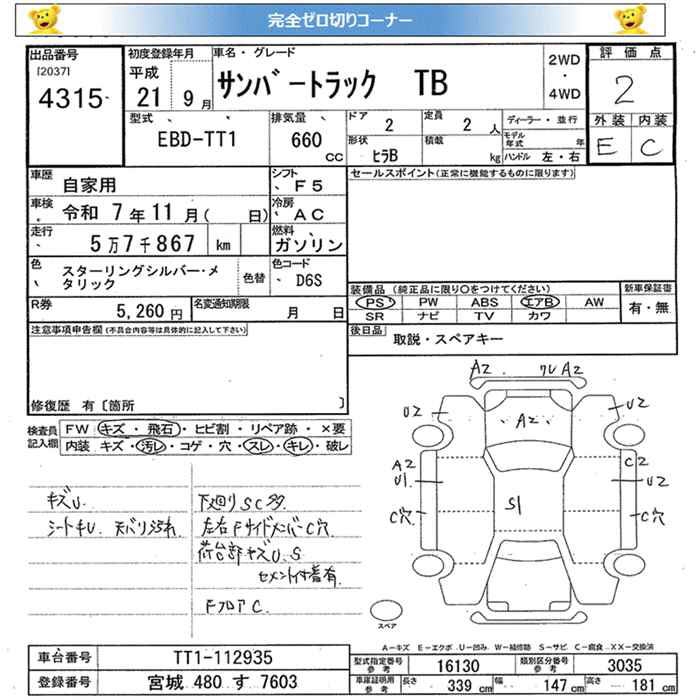 完全ゼロ切りコーナー
出品番号 初度登録年月 車名・グレード 評価点
[2037] 平成 2WD
4315 21 9月 サンバートラック TB ・ 2
4WD
型式 排気量 ドア 2 定員 2 人 ディーラー・並行 外装 内装
EBD-TT1 660 cc 形状 ヒラB 積載 kg モデル年式 年 E C
ハンドル 左・右
車歴 自家用 シフト F5 セールスポイント(正常に機能するものに限ります)
車検 令和 7年11月( 日) 冷房 AC
走行 5万7千867 km 燃料 ガソリン
色 スターリングシルバー・メタリック 色替 色コード D6S
装備品 (純正品に限り○をつけてください) 新車保証書
PS PW ABS エアB AW 有・無
R券 5,260円 名変通知期限 月 日 SR ナビ TV カワ
注意事項申告欄(不具合内容等は具体的に記入して下さい) 後日品 取説・スペアキー
修復歴 有〔箇所 〕
検査員記入欄 FW キズ・飛石・ヒビ割・リペア跡・×要
内装 キズ・汚レ・コゲ・穴・スレ・キレ・破レ
キズU. 下廻りSC多
シートキU. 天バリ汚れ 左右FサイドメンバーC穴
荷台部キズU.S
セメント付着有.
FフロアC.
A2 ワレA2
U2 A2 U2
A2 C2
U1 S1 U2
C穴 C穴
スペア
A−キズ E−エクボ U−凹み W−補修跡 S−サビ C−腐食 XX−交換済
車台番号 TT1-112935 型式指定番号 参考 16130 類別区分番号 参考 3035
登録番号 宮城 480 す 7603 車庫証明用 参考 長さ 339 cm 幅 147 cm 高さ 181 cm